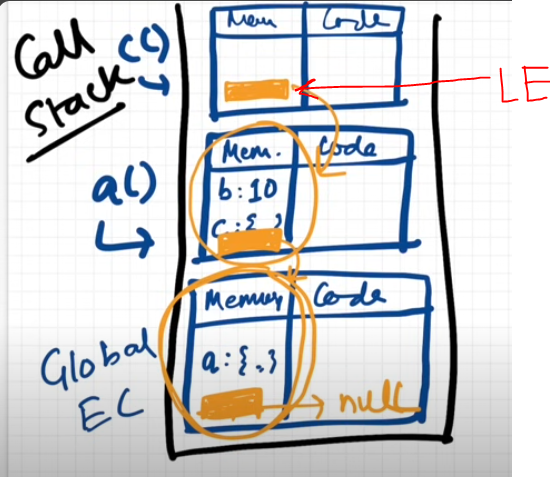 Call
Stack
c()
Mem
Code
LE
a()
Mem.
Code
b:10
c:{ }
Global
EC
Memory
Code
a:{.}
null